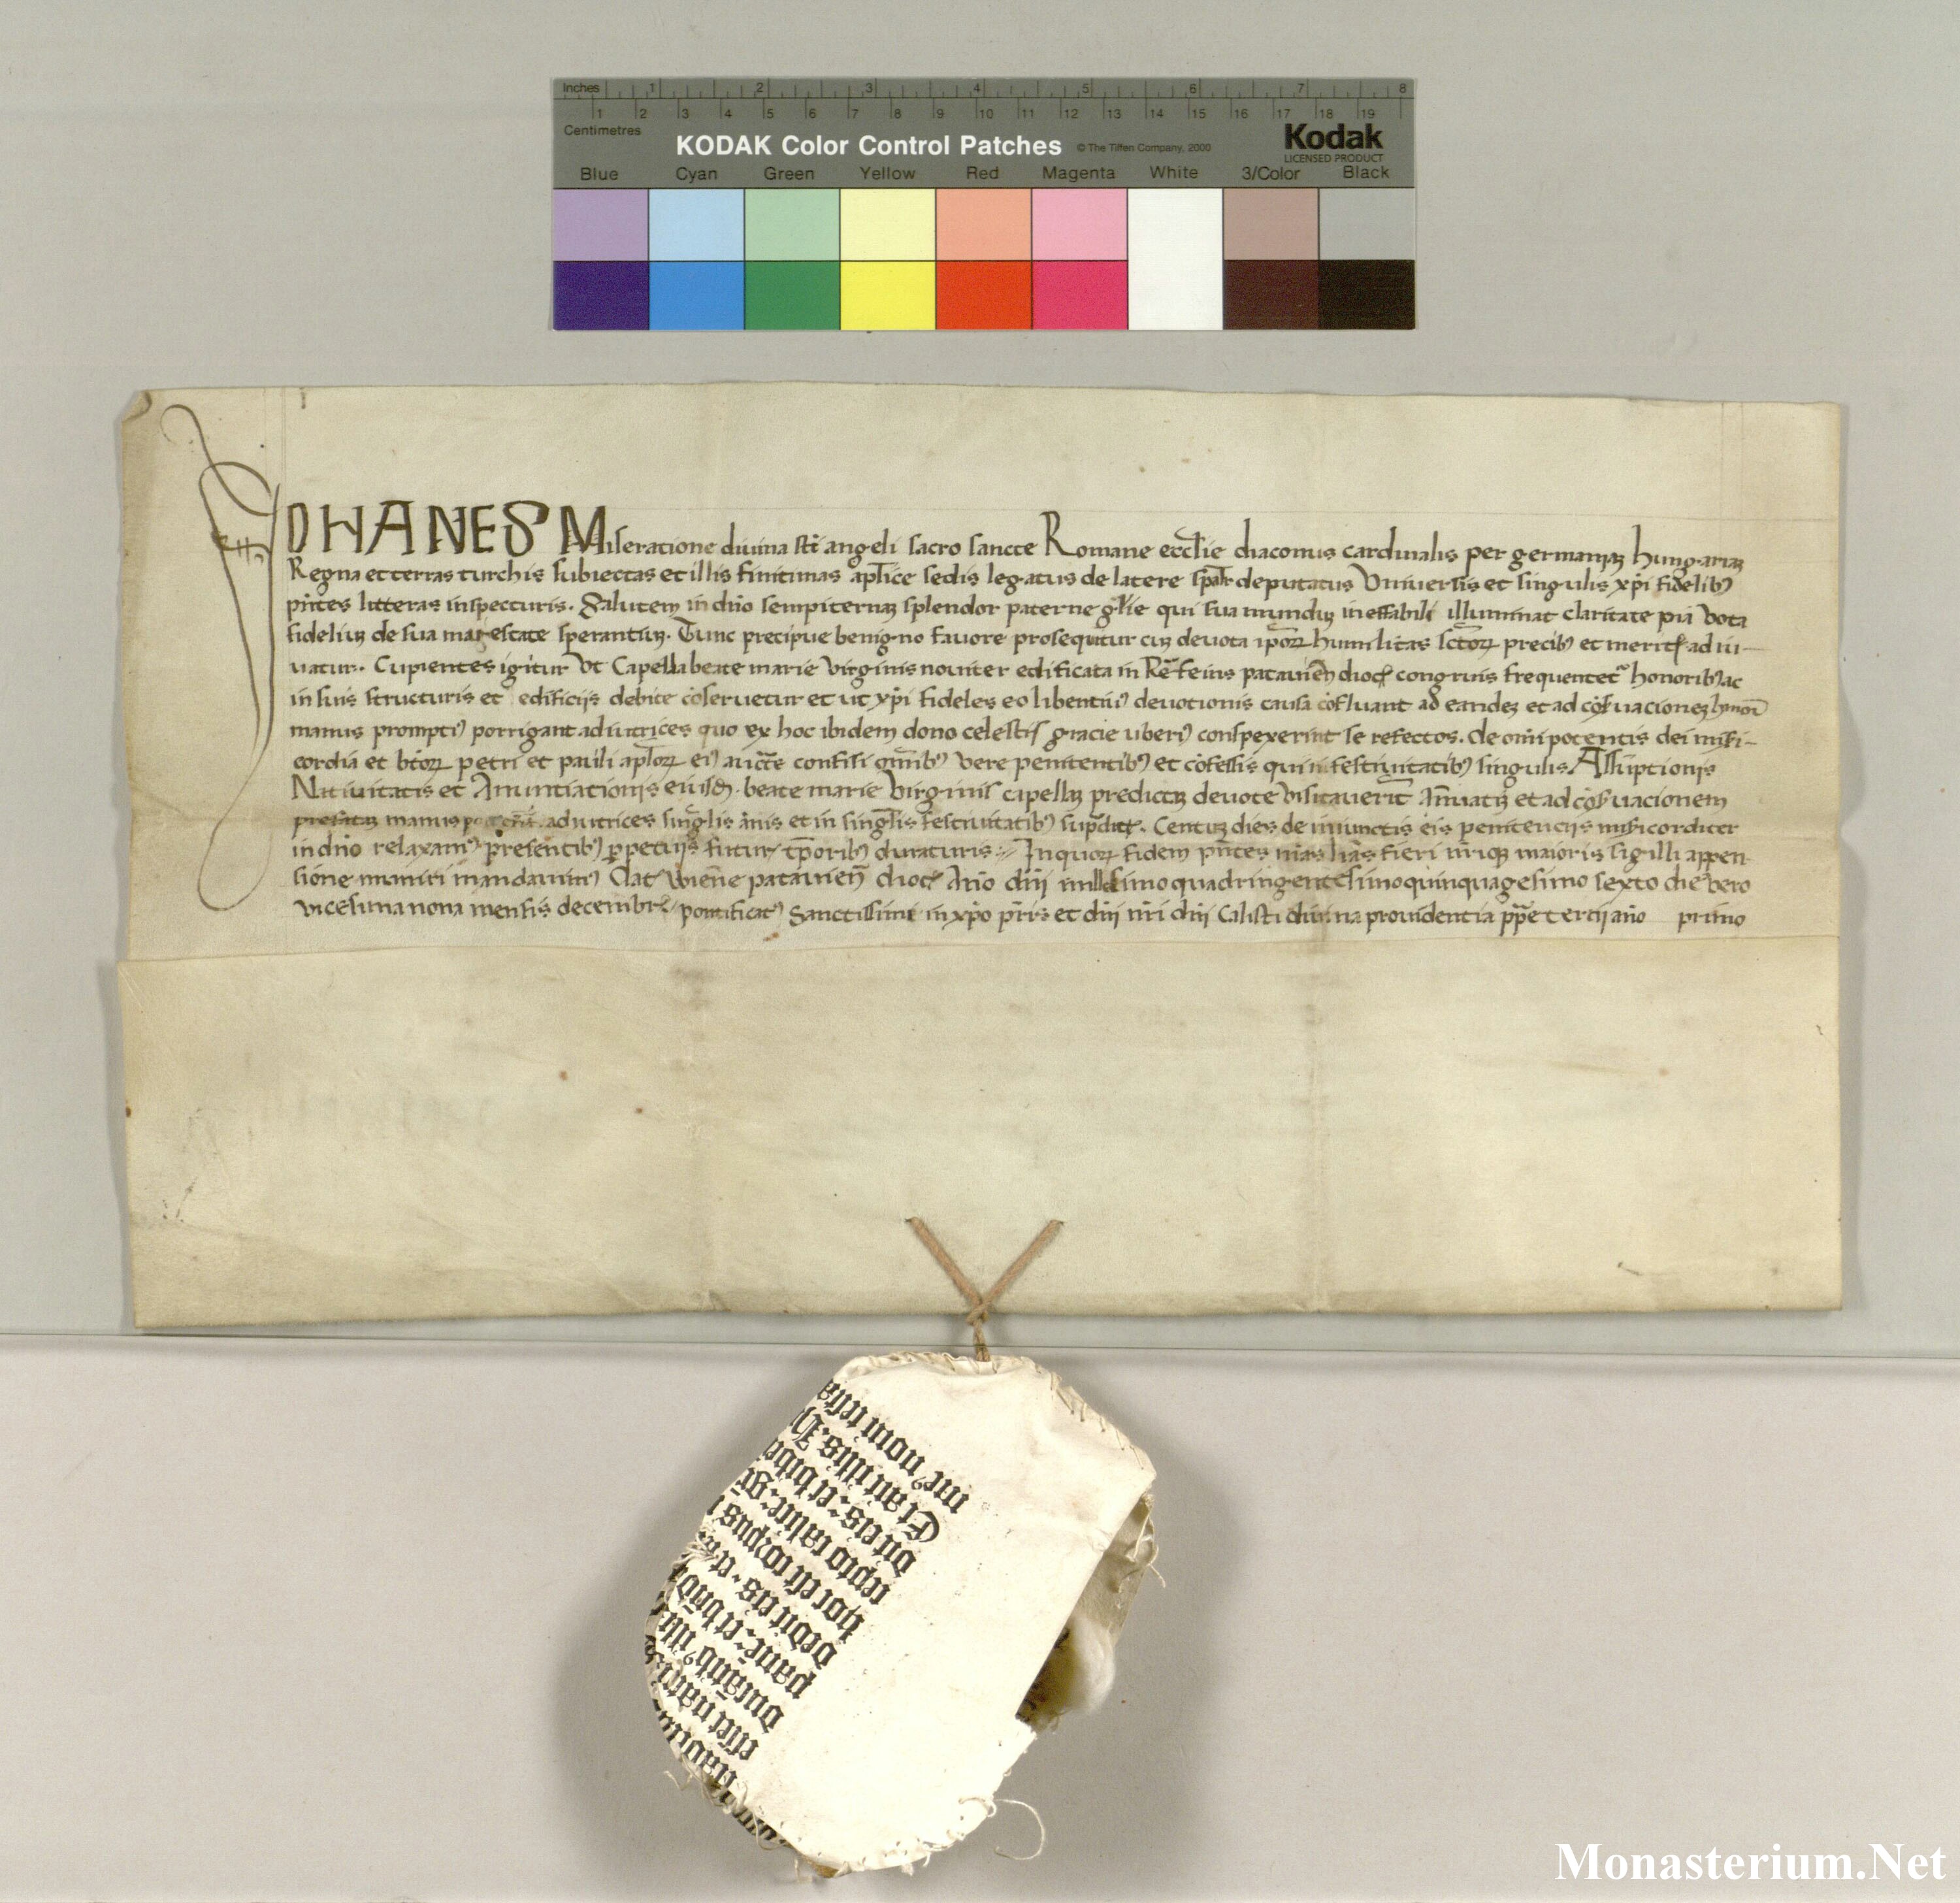 Inches 1 2 3 4 5 6 7 8
1 2 3 4 5 6 7 8 9 10 11 12 13 14 15 16 17 18 19
Centimetres
KODAK Color Control Patches © The Tiffen Company, 2000 Kodak
LICENSED PRODUCT
Blue Cyan Green Yellow Red Magenta White 3/Color Black
JOHANES Miseratione diuina scti angeli sacro sancte Romane eccl̄ie diaconus cardinalis per germaniaȝ hungariaȝ
Regna et terras turchis subiectas et illis finitimas apl̄ice sedis legatus de latere spāl̄r deputatus Vniuersis et singulis xp̄i fidelibꝯ
pn̄tes litteras inspecturis. Salutem in dn̄o sempiternaȝ splendor paterne gl̄ie qui sua munduȝ ineffabili illuminat claritate pia vota
fideliuȝ de sua maiestate sperantiuȝ. Tunc precipue benigno fauore prosequitur cuȝ deuota ip̄oꝝ humilitas sctōꝝ precibꝯ et meritꝭ ad iu-
uatur. Cupientes igitur vt Capella beate marie virginis nouiter edificata in patauien̄ dioc̄ congruis frequentet᷑ honoribꝯ ac
in suis structuris et edificijs debite cōseruetur et ut xp̄i fideles eo libentiꝯ deuotionis causa cōfluant ad eandeȝ et ad cōẜuacioneȝ hmōi
manus promptiꝯ porrigant adiutrices quo ex hoc ibidem dono celestis gracie uberiꝯ conspexerint se refectos. de om̄ipotentis dei misi-
cordia et btōꝝ petri et pauli apl̄oꝝ eiꝯ auct̄te confisi om̄ibꝯ vere penitentibꝯ et cōfessis qui in festiuitatibꝯ singulis Assūptionis
Natiuitatis et Anunciationis eiusd̄. beate marie virginis capellaȝ predictaȝ deuote visitauerit Annuatiȝ et ad cōẜuacionem
prefataȝ manus adiutrices singl̄is ānis et in singl̄is festiuitatibꝯ supradict̄. Centuȝ dies de iniunctis eis penitencijs misicorditer
in dn̄o relaxamꝯ presentibꝯ ꝑpetuijs futur̄ tp̄oribꝯ duraturis. In quoꝝ fidem pn̄tes nr̄as lr̄as fieri nr̄iqȝ maioris sigilli appen-
sione muniri mandauimꝯ Dat̄ wiēne patauien̄ dioc̄ Anō dn̄i millesimo quadringentesimo quinquagesimo sexto die vero
vicesima nona mensis decembrꝭ pontificatꝯ Sanctissimi in xp̄o pr̄is et dn̄i nr̄i dn̄i Calisti diuina prouidentia pp̄e tercij anō primo
me nom
Et ait illis. H
dit eis. et bibe
cepto calice. g
hoc est corpus
dedit eis. et
pane. et bn̄d
ducātibꝯ ill
esset
Monasterium.Net